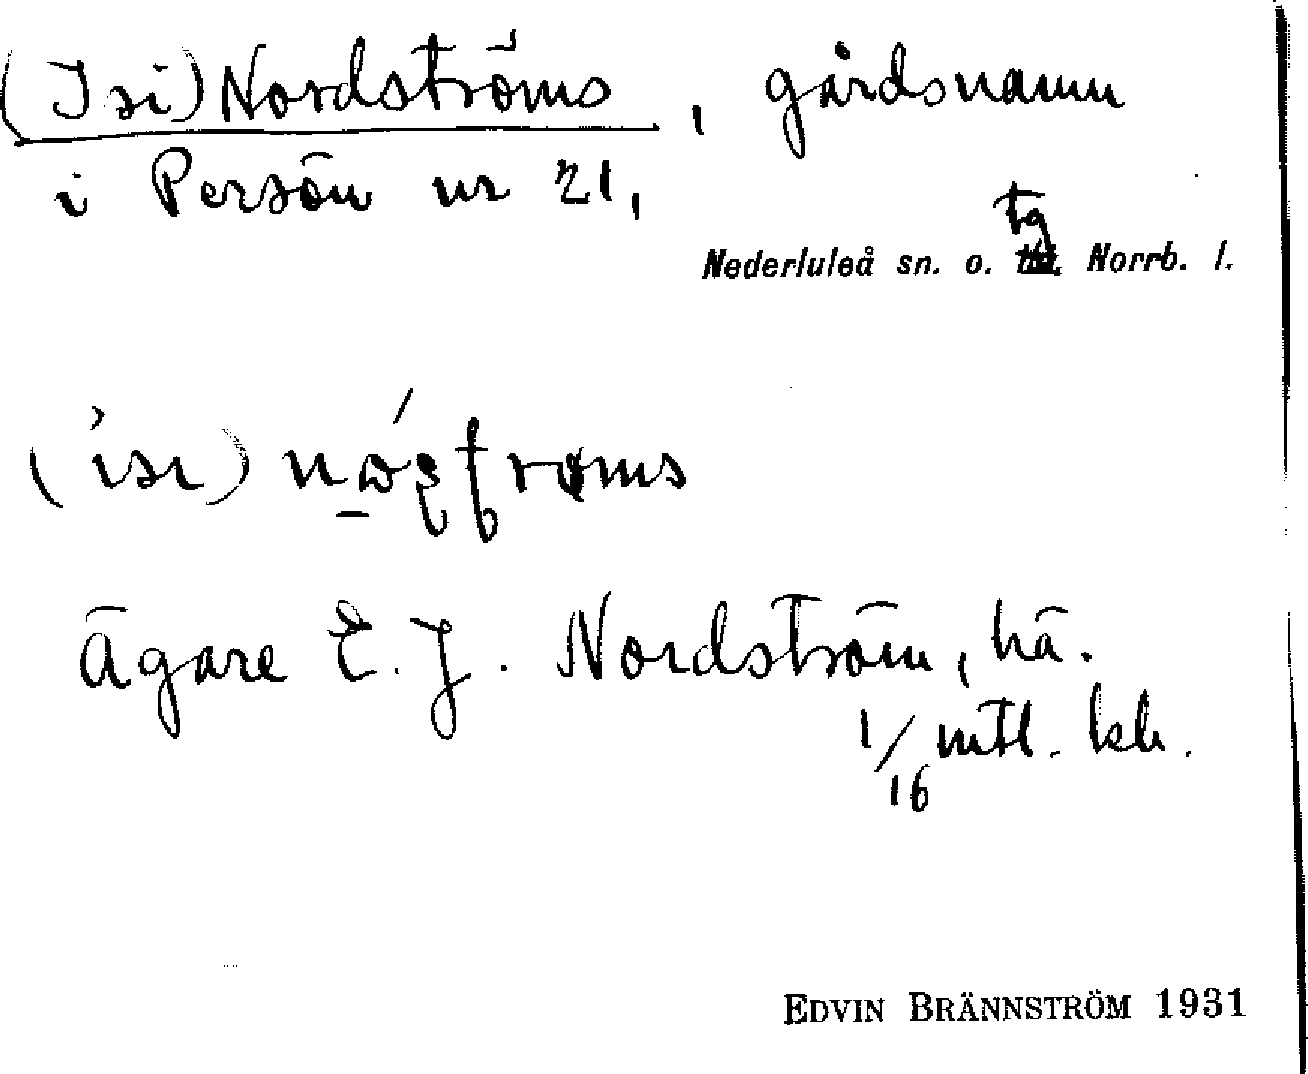 (Isi) Nordströms, gårdsnamn
i Persön nr 21,
tg
Nederluleå sn. o. Norrb. l.
( isi)
Ägare E. J. Nordström, hä.
1/16 mtl. kr.
EDVIN BRÄNNSTRÖM 1931